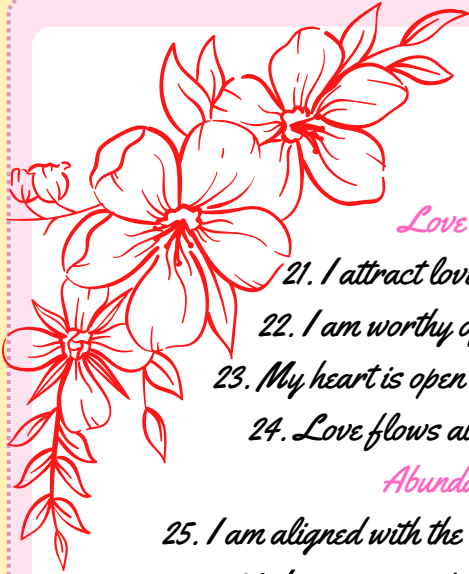 Love
21. I attract lovi
22. I am worthy o
23. My heart is open
24. Love flows a
Abunda
25. I am aligned with the